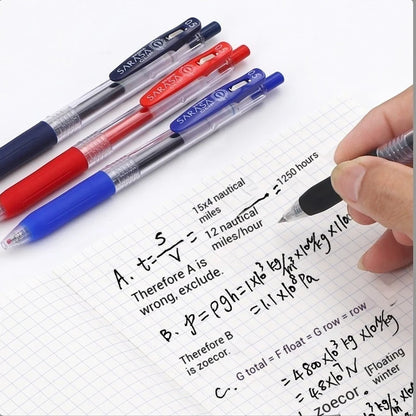 SARASA
SARASA
SARASA
A. t = S/V = 15x4 nautical miles / 12 nautical miles/hour = 1250 hours
Therefore A is
wrong, exclude.
B. P = ρgh = 1×10³ kg/m³ ×10N/kg ×11
= 1.1×10⁸ Pa
Therefore B
is zoecor.
G total = F float = G row = row
C.
= 4800×10³ kg ×10N/kg
= 4.8×10⁷N
[Floating
winter